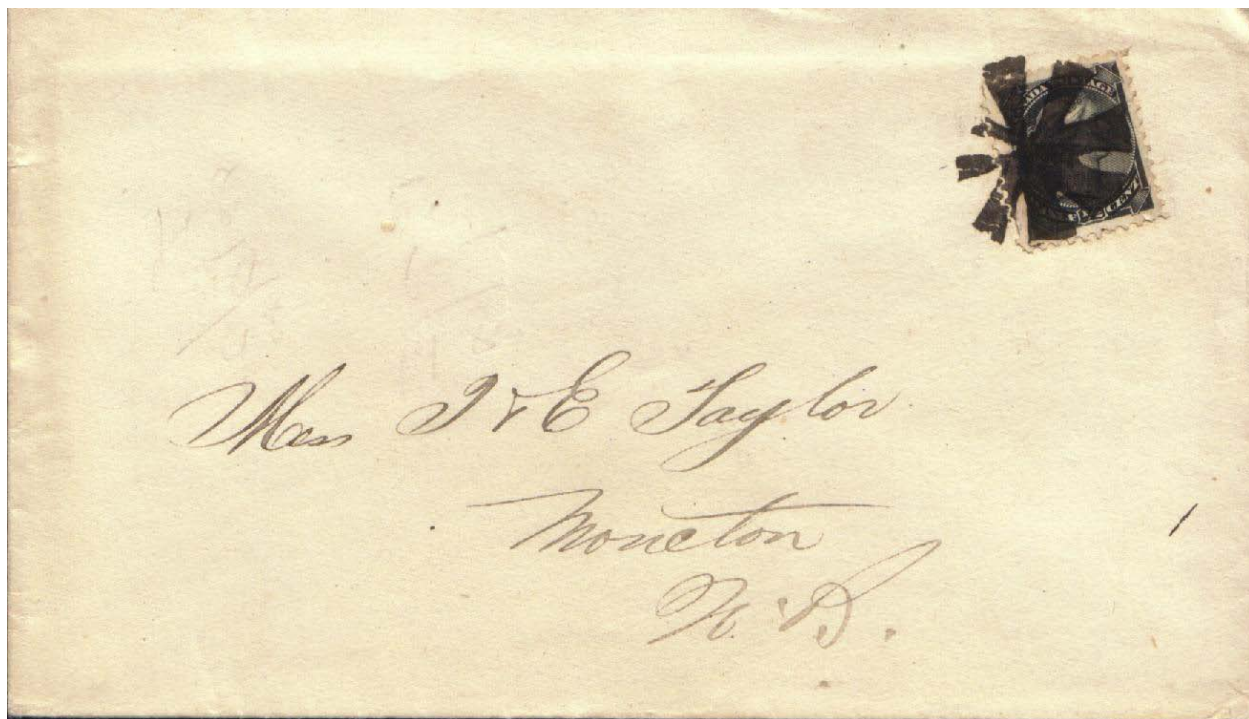 Mess J & E Taylor
Moncton
N.B.